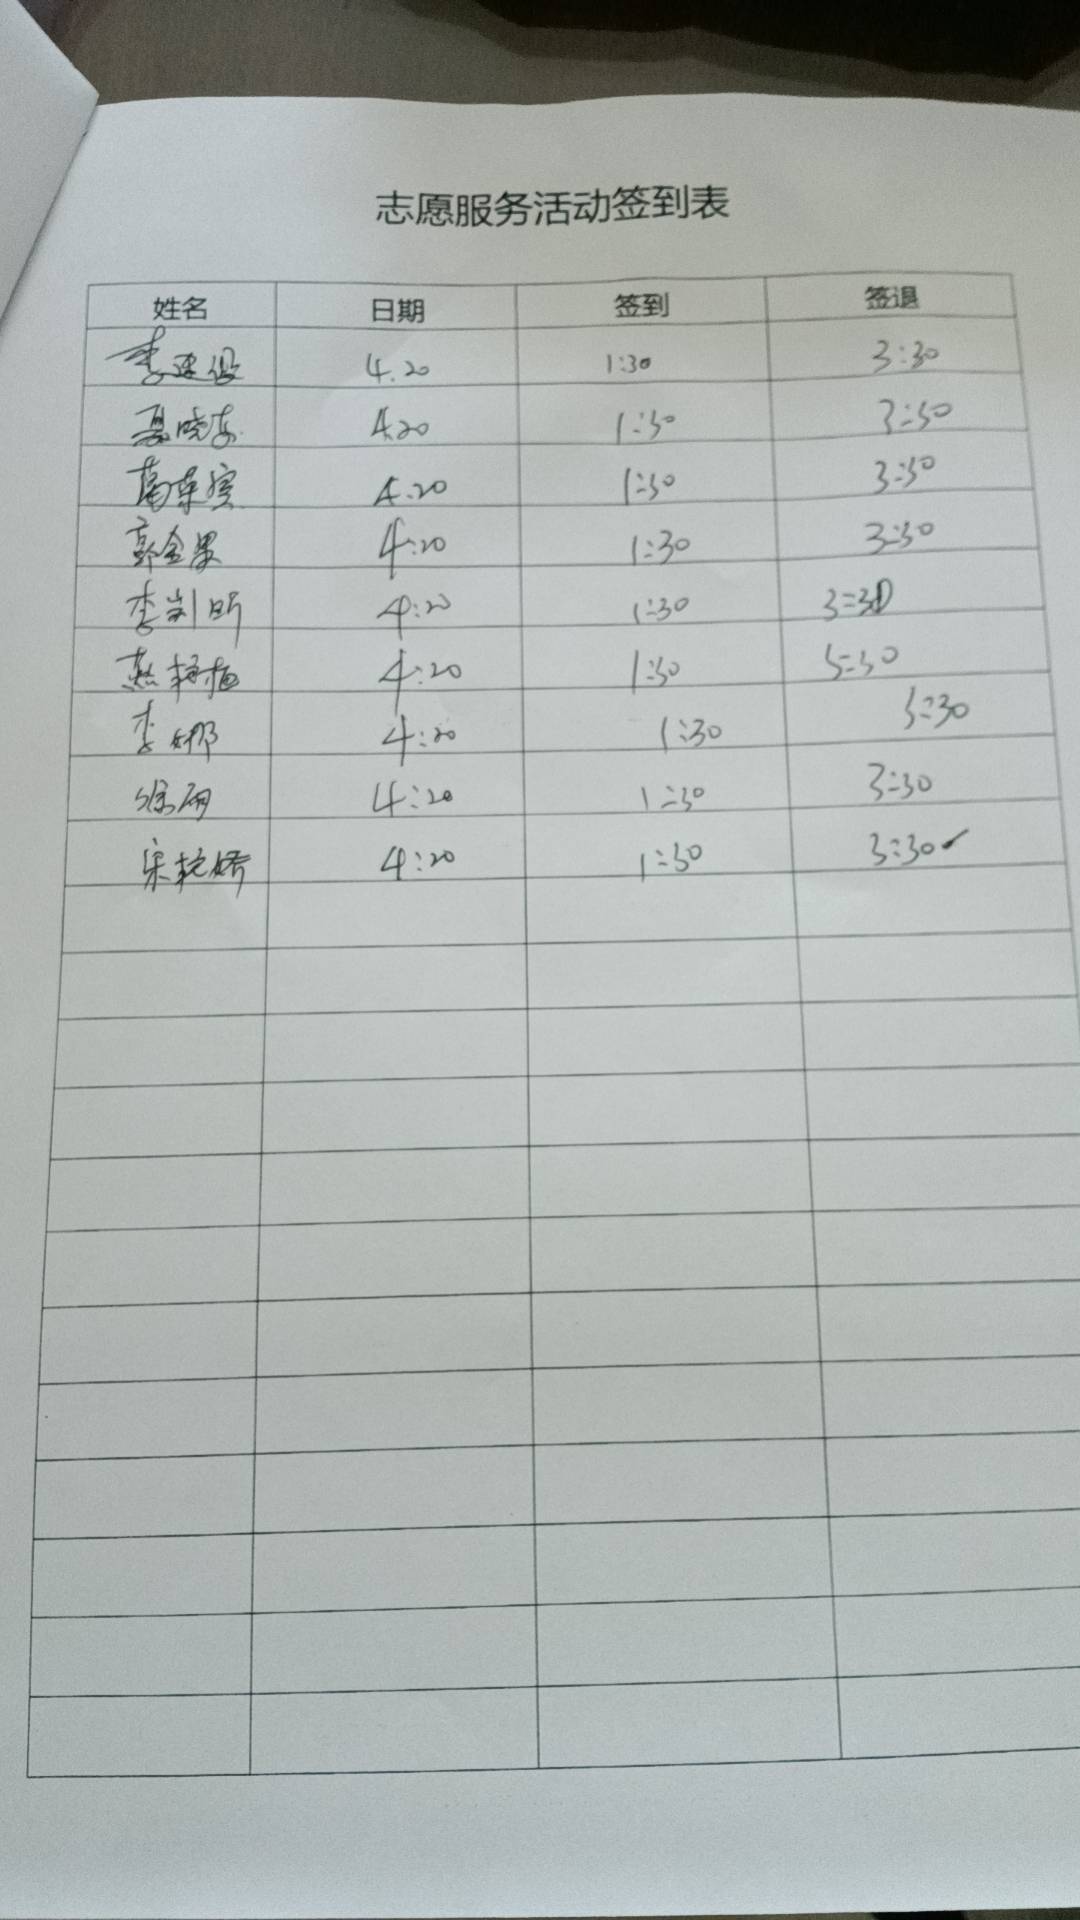 志愿服务活动签到表
姓名 日期 签到 签退
李建 4.20 1:30 3:30
夏晓东 4.20 1:30 3:30
高东宾 4.20 1:30 3:30
郭金果 4:20 1:30 3:30
李 昕 4:20 1:30 3:30
燕艳梅 4:20 1:30 3:30
李娜 4:20 1:30 3:30
徐丽 4:20 1:30 3:30
宋艳娇 4:20 1:30 3:30